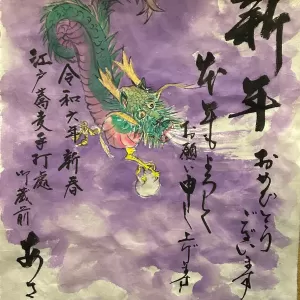 新年
おめでとう
ございます
本年もよろしく
お願い申し上げます
令和六年 新春
江戸蕎麦手打處
御蔵前
あさ